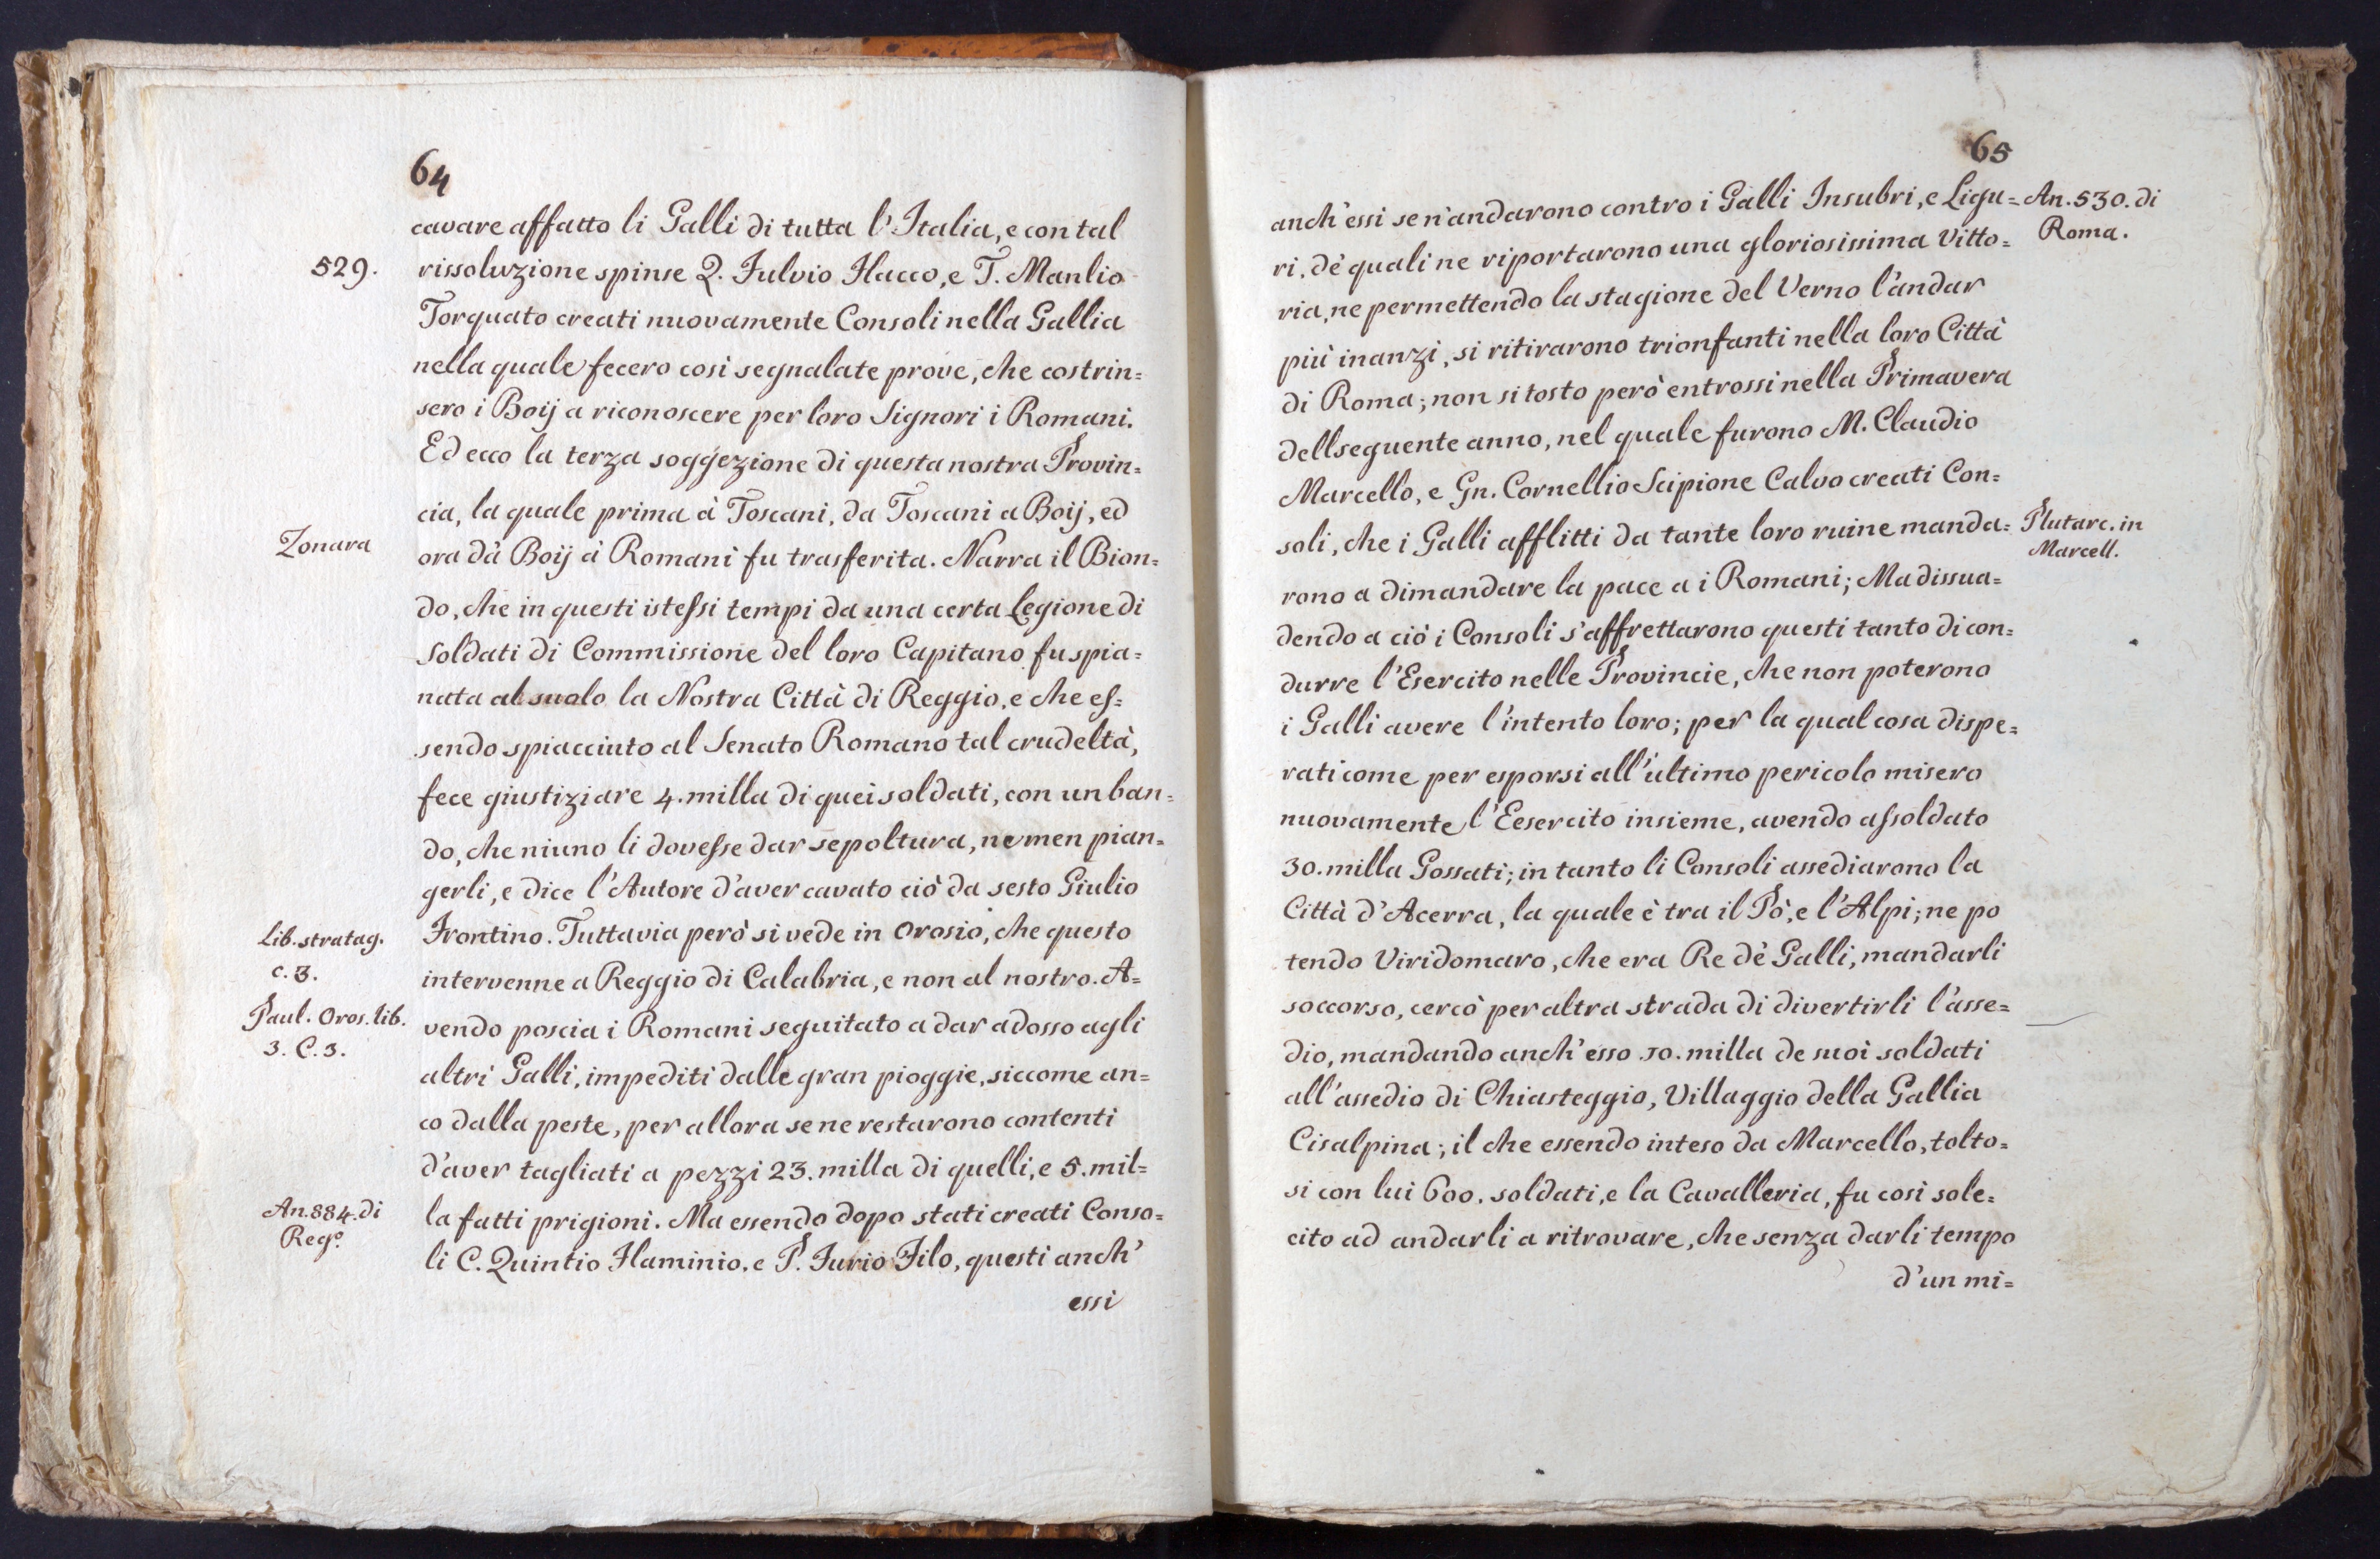 64
cavare affatto li Galli di tutta l'Italia, e con tal
529.
rissoluzione spinse Q. Fulvio Flacco, e T. Manlio
Torquato creati nuovamente Consoli nella Gallia
nella quale fecero così segnalate prove, che costrin=
sero i Boij a riconoscere per loro Signori i Romani.
Ed ecco la terza soggezione di questa nostra Provin=
cia, la quale prima à Toscani, da Toscani a Boij, ed
Zonara
ora dà Boij à Romani fu trasferita. Narra il Bion=
do, che in questi istessi tempi da una certa Legione di
Soldati di Commissione del loro Capitano fu spia=
nata al suolo la Nostra Città di Reggio, e che es=
sendo spiacciuto al Senato Romano tal crudeltà,
fece giustiziare 4. milla di quei soldati, con un ban=
do, che niuno li dovesse dar sepoltura, ne men pian=
gerli, e dice l'Autore d'aver cavato ciò da sesto Giulio
Lib. stratag.
c. 3.
Frontino. Tuttavia però si vede in Orosio, che questo
intervenne a Reggio di Calabria, e non al nostro. A=
Paul. Oros. lib.
3. C. 3.
vendo poscia i Romani seguitato a dar adosso agli
altri Galli, impediti dalle gran pioggie, siccome an=
co dalla peste, per allora se ne restarono contenti
d'aver tagliati a pezzi 23. milla di quelli, e 5. mil=
An. 884. di
Regº.
la fatti prigioni. Ma essendo dopo stati creati Conso=
li C. Quintio Flaminio, e P. Furio Filo, questi anch'
essi
65
anch'essi se n'andarono contro i Galli Insubri, e Ligu=
An. 530. di
Roma.
ri, dè quali ne riportarono una gloriosissima Vitto=
ria, ne permettendo la stagione del Verno l'andar
più inanzi, si ritirarono trionfanti nella loro Città
di Roma; non si tosto però entrossi nella Primavera
dell seguente anno, nel quale furono M. Claudio
Marcello, e Gn. Cornellio Scipione Calvo creati Con=
soli, che i Galli afflitti da tante loro ruine manda=
Plutarc. in
Marcell.
rono a dimandare la pace a i Romani; Ma dissua=
dendo a ciò i Consoli s'affrettarono questi tanto di con=
durre l'Esercito nelle Provincie, che non poterono
i Galli avere l'intento loro; per la qual cosa dispe=
rati come per esporsi all'ultimo pericolo misero
nuovamente l'Eesercito insieme, avendo assoldato
30. milla Gossati; in tanto li Consoli assediarono la
Città d'Acerra, la quale è tra il Pò, e l'Alpi; ne po
tendo Viridomaro, che era Re dè Galli, mandarli
soccorso, cercò per altra strada di divertirli l'asse=
dio, mandando anch'esso 10. milla de suoi soldati
all'assedio di Chiasteggio, Villaggio della Gallia
Cisalpina; il che essendo inteso da Marcello, tolto=
si con lui 600. soldati, e la Cavalleria, fu così sole=
cito ad andarli a ritrovare, che senza darli tempo
d'un mi=